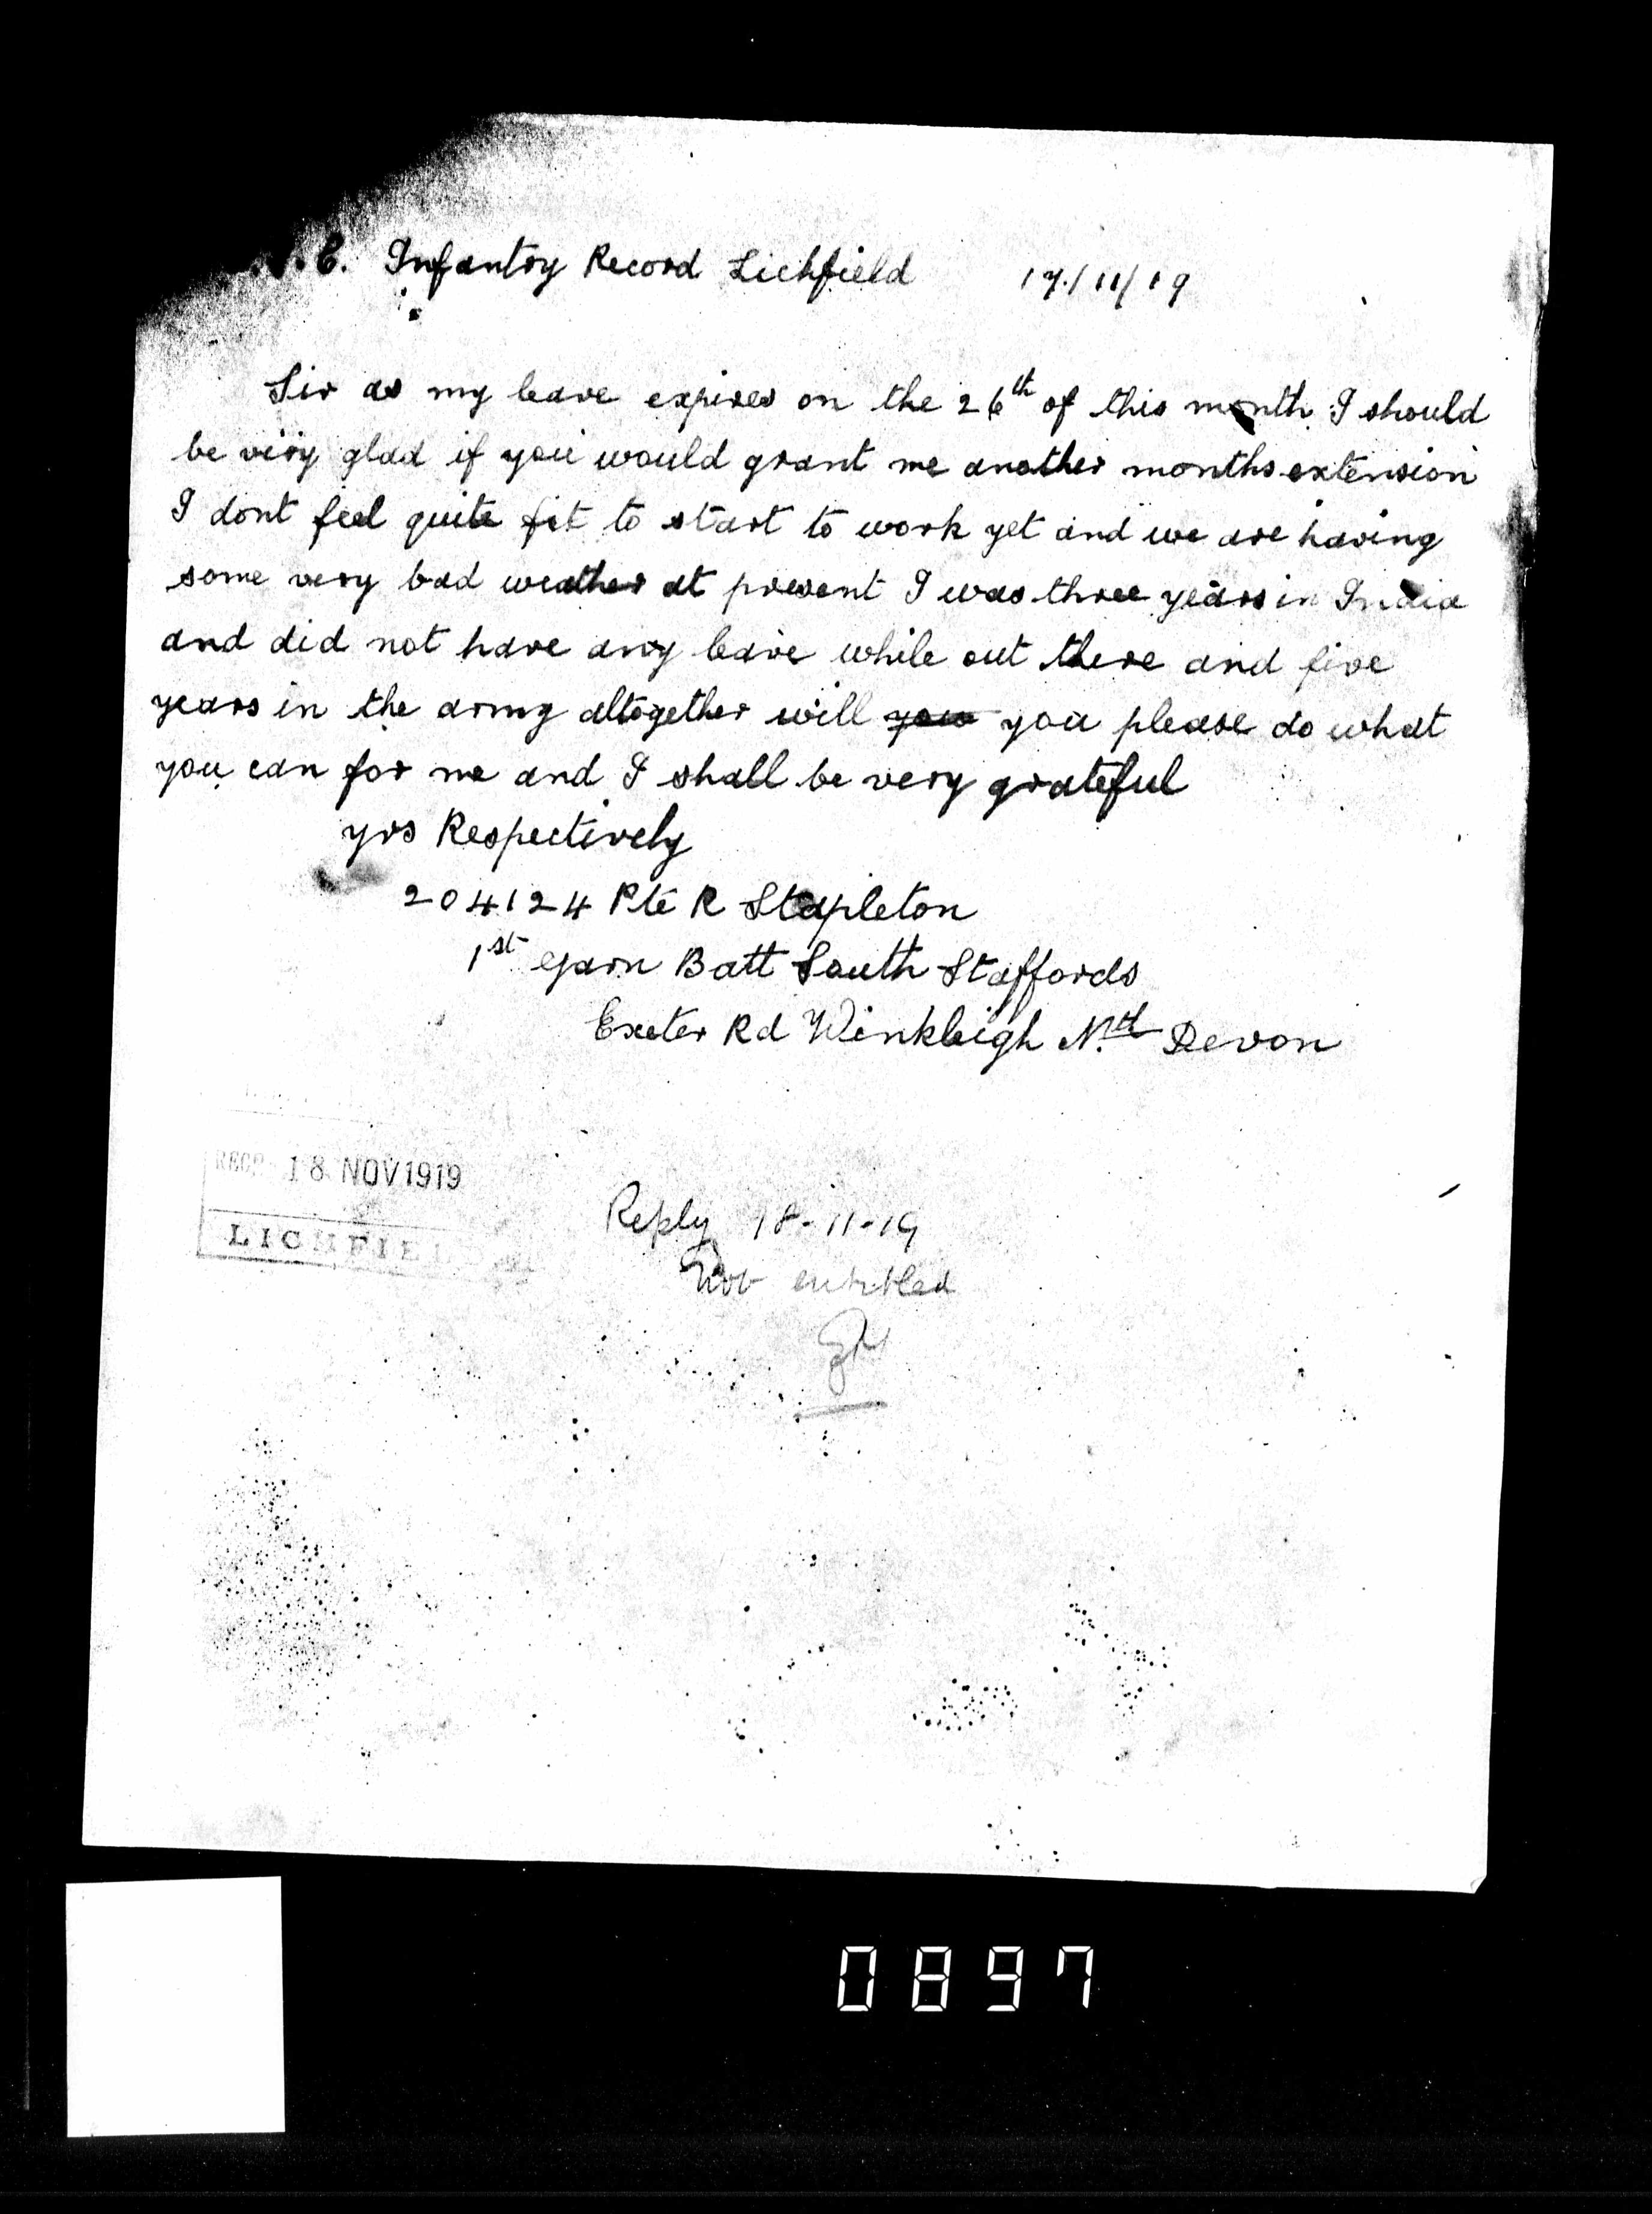 C. Infantry Record Lichfield 17/11/19
Sir as my leave expires on the 26th of this month I should
be very glad if you would grant me another months extension
I dont feel quite fit to start to work yet and we are having
some very bad weather at present I was three years in India
and did not have any leave while out there and five
years in the army altogether will you you please do what
you can for me and I shall be very grateful
yrs Respectively
204124 Pte R Stapleton
1st Garn Batt South Staffords
Exeter Rd Winkleigh Nth Devon
18 NOV 1919
LICHFIEL
Reply 18-11-19
Not entitled
0897